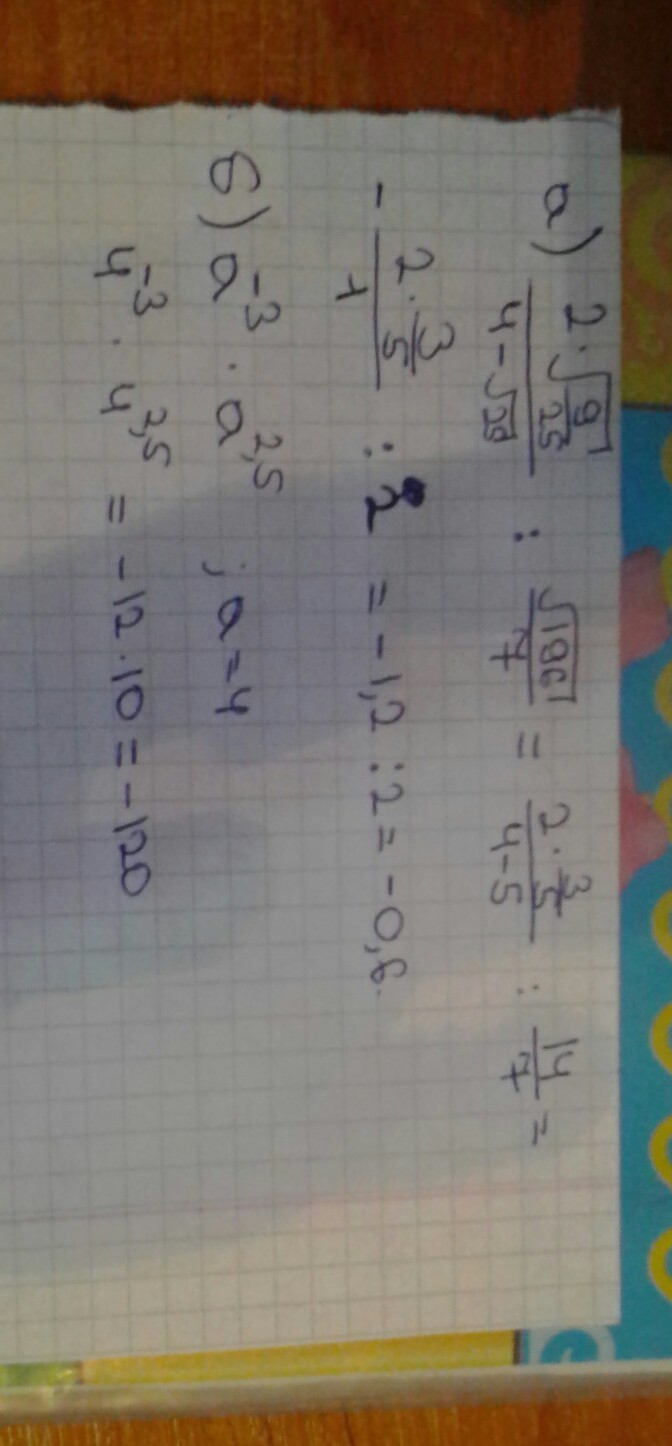 а) (2·√(9/25))/(4-√25) : √196/7 = (2·3/5)/(4-5) : 14/7 =
- (2·3/5)/1 : 2 = -1,2 : 2 = -0,6.
б) a⁻³ · a²,⁵ ; a=4
4⁻³ · 4²,⁵ = -12·10 = -120